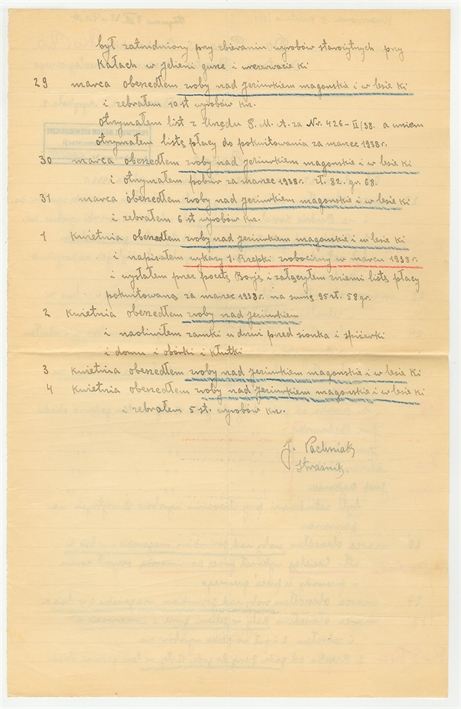 był zatrudniony przy zbieraniu wyrobów starożytnych przy
29 marca obszedłem roby nad Jeziurkiem magonskie i w lesie Ki
i zebrałem 10 st wyrobów Kr.
otrzymałem list z Urzędu P. M. A. za Nr. 426-II/38. a wniem
otrzymałem listę płacy do pokwitowania za marzec 1938r.
30 marca obeszedłem roby nad Jeziurkiem magonskie i w lesie Ki
i otrzymałem pobur za marzec 1938r. zł. 82. gr 68.
31 marca obeszedłem roby nad Jeziurkiem magonskie i w lesie Ki
i zebrałem 6 st wyrobów Kr.
1 kwietnia obeszedłem roby nad Jeziurkiem magonskie i w lesie Ki
i napisałem wykazy 1. Rzepki robocizny w marcu 1938r.
i wysłałem przez pocztę i załączyłem zniemi listę płacy
pokwitowaną za marzec 1938r. na sumę 95 zł. 58 gr.
2 kwietnia obeszedłem roby nad Jeziurkiem
zamki u drzwi przed sionka i spiżarki
i domu i obórki i kłutki
3 kwietnia obeszedłem roby nad Jeziurkiem magonskie i w lesie Ki
4 kwietnia obeszedłem roby nad Jeziurkiem magonskie i w lesie Ki
i zebrałem 5 st. wyrobów Kr.
J. Pachniak
Strażnik